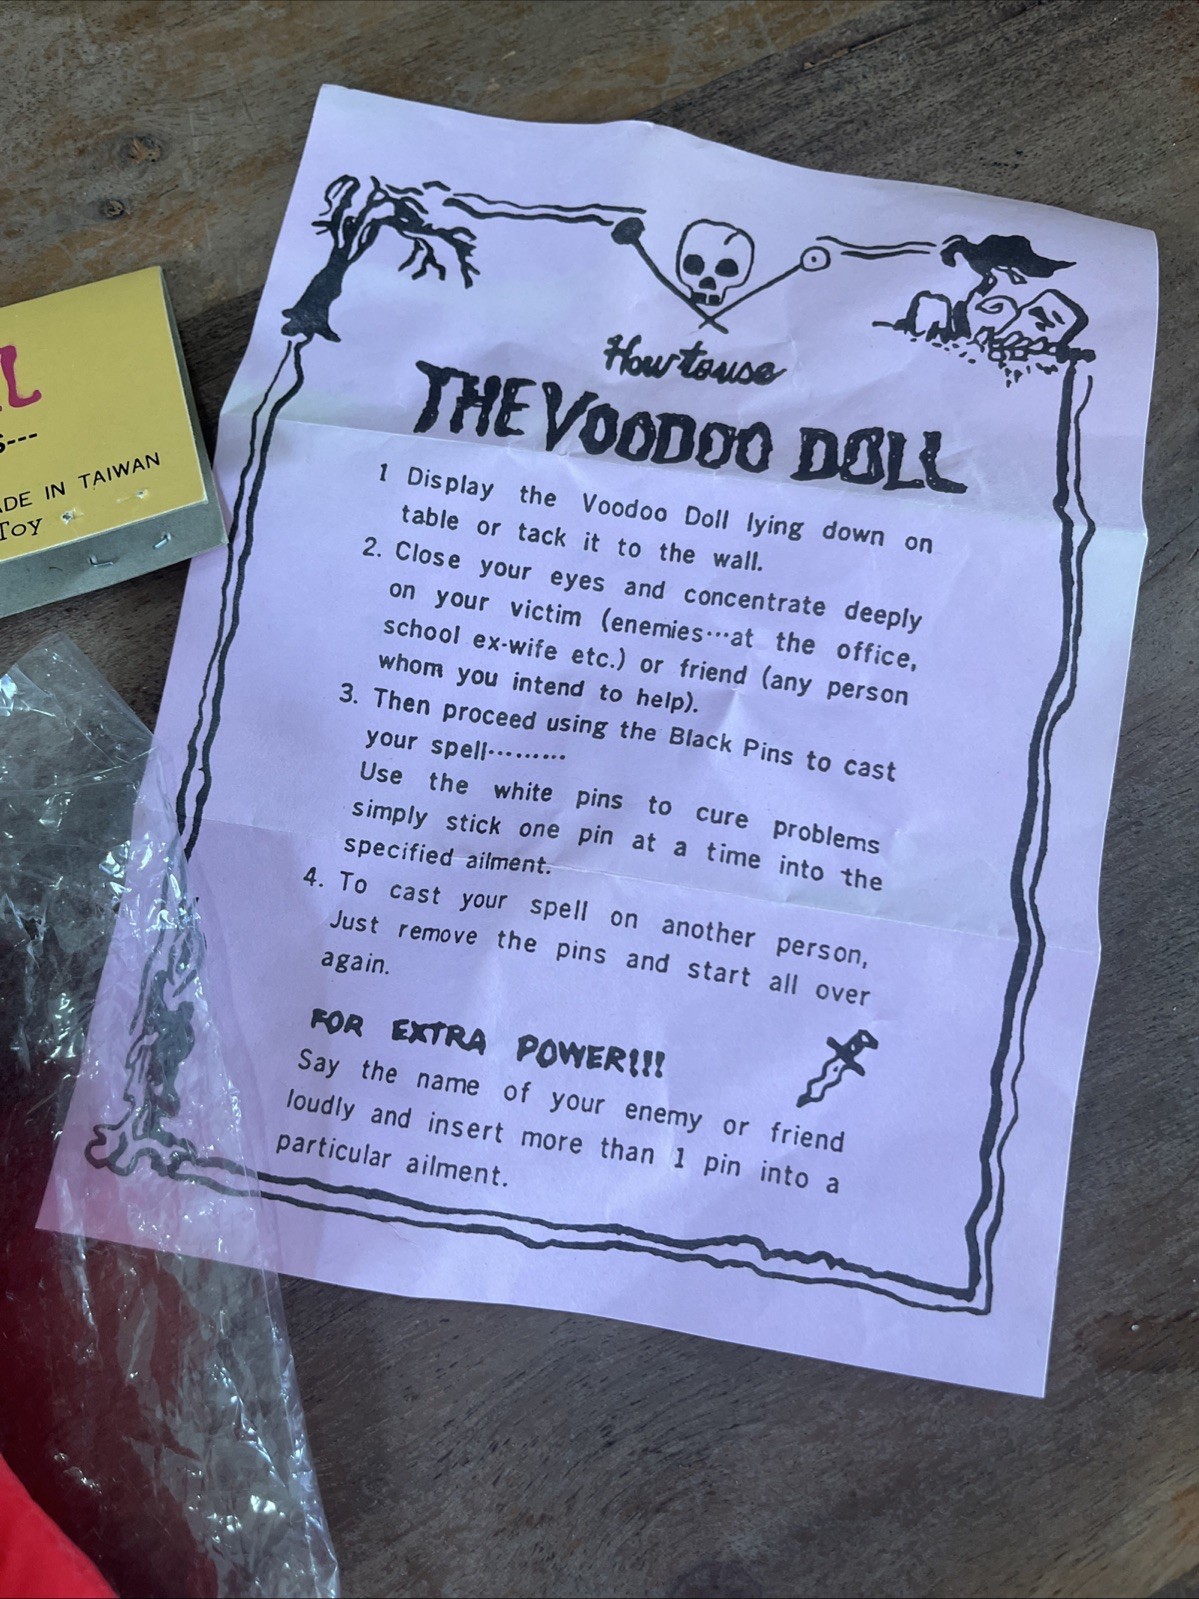 L
S---
ADE IN TAIWAN
Toy
How to use
THE VOODOO DOLL
1 Display the Voodoo Doll lying down on
table or tack it to the wall.
2. Close your eyes and concentrate deeply
on your victim (enemies···at the office,
school ex-wife etc.) or friend (any person
whom you intend to help).
3. Then proceed using the Black Pins to cast
your spell·········
Use the white pins to cure problems
simply stick one pin at a time into the
specified ailment.
4. To cast your spell on another person,
Just remove the pins and start all over
again.
FOR EXTRA POWER!!!
Say the name of your enemy or friend
loudly and insert more than 1 pin into a
particular ailment.